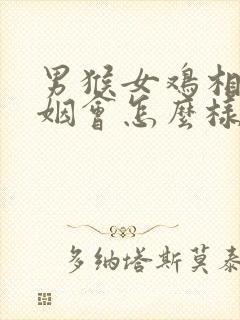 男猴女鸡相
姻會怎麼樣
多纳塔斯莫泰